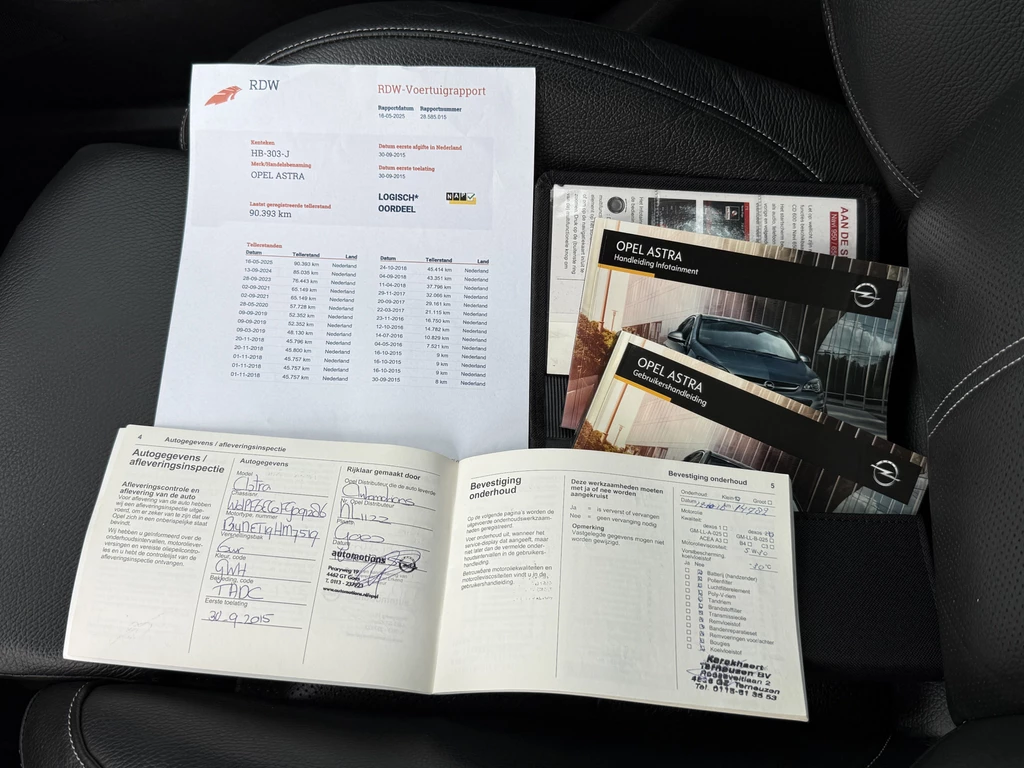 RDW
RDW-Voertuigrapport
Rapportdatum Rapportnummer
16-05-2025 28.585.015
Kenteken
HB-303-J
Merk/Handelsbenaming
OPEL ASTRA
Datum eerste afgifte in Nederland
30-09-2015
Datum eerste toelating
30-09-2015
Laatst geregistreerde tellerstand
90.393 km
LOGISCH*
OORDEEL
NAP
Tellerstanden
Datum Tellerstand Land
16-05-2025 90.393 km Nederland
13-09-2024 85.035 km Nederland
28-09-2023 76.443 km Nederland
02-09-2021 65.149 km Nederland
02-09-2021 65.149 km Nederland
28-05-2020 57.728 km Nederland
09-09-2019 52.352 km Nederland
09-09-2019 52.352 km Nederland
09-03-2019 48.130 km Nederland
20-11-2018 45.796 km Nederland
20-11-2018 45.800 km Nederland
01-11-2018 45.757 km Nederland
01-11-2018 45.757 km Nederland
01-11-2018 45.757 km Nederland
Datum Tellerstand Land
24-10-2018 45.414 km Nederland
04-09-2018 43.351 km Nederland
11-04-2018 37.798 km Nederland
29-11-2017 32.066 km Nederland
20-09-2017 29.161 km Nederland
22-03-2017 21.115 km Nederland
23-11-2016 16.750 km Nederland
12-10-2016 14.782 km Nederland
14-07-2016 10.829 km Nederland
04-05-2016 7.521 km Nederland
16-10-2015 9 km Nederland
16-10-2015 9 km Nederland
16-10-2015 9 km Nederland
30-09-2015 8 km Nederland
AAN DE S
OPEL ASTRA
Handleiding Infotainment
OPEL ASTRA
Gebruikershandleiding
4 Autogegevens / afleveringsinspectie
Autogegevens /
afleveringsinspectie
Afleveringscontrole en
aflevering van de auto
Voor aflevering van de auto hebben
wij een afleveringsinspectie uitge-
voerd, om er zeker van te zijn dat uw
Opel zich in een onberispelijke staat
bevindt.
Wij hebben u geïnformeerd over de
onderhoudsintervallen, motorolie-
versingen en vereiste oliepeilcontro-
les en u hebt de controlelijst van de
afleveringsinspectie ontvangen.
Autogegevens
Model
Chassisnr.
Motortype, nummer
Versnellingsbak
Kleur, code
GWH
Bekleding, code
TADC
Eerste toelating
30.9.2015
Rijklaar gemaakt door
Opel Distributeur die de auto leverde
Automotions
Nr. Opel Distributeur
NL
Plaats
Goes
Datum
automotions
Pearyweg 19
4462 GT Goes
T. 0113 - 237023
Bevestiging onderhoud 5
Bevestiging
onderhoud
Op de volgende pagina's worden de
uitgevoerde onderhoudswerkzaam-
heden geregistreerd.
Voer onderhoud uit, wanneer het
service-display dat aangeeft, maar
niet later dan de vermelde onder-
houdsintervallen in de gebruikers-
handleiding.
Betrouwbare motoroliekwaliteiten en
motorolieviscositeiten vindt u in de
gebruikershandleiding.
Deze werkzaamheden moeten
met ja of nee worden
aangekruist
Ja = is ververst of vervangen
Nee = geen vervanging nodig
Opmerking
Vastgelegde gegevens mogen niet
worden gewijzigd.
Onderhoud: Klein Groot
Datum, 14.782
Motorolie
Kwaliteit:
dexos 1 dexos 2
GM-LL-A-025 GM-LL-B-025
ACEA A3 B4 C3
Motorolieviscositeit: 5W30
Vorstbescherming,
koelvloeistof -20°C
Ja Nee
Batterij (handzender)
Pollenfilter
Luchtfilterelement
Poly-V-riem
Tandriem
Brandstoffilter
Transmissieolie
Remvloeistof
Bandenreparatieset
Remvoeringen voor/achter
Bougies
Koelvloeistof
Karakhaert
Terneuzen BV
Rooseveltlaan 2
Terneuzen